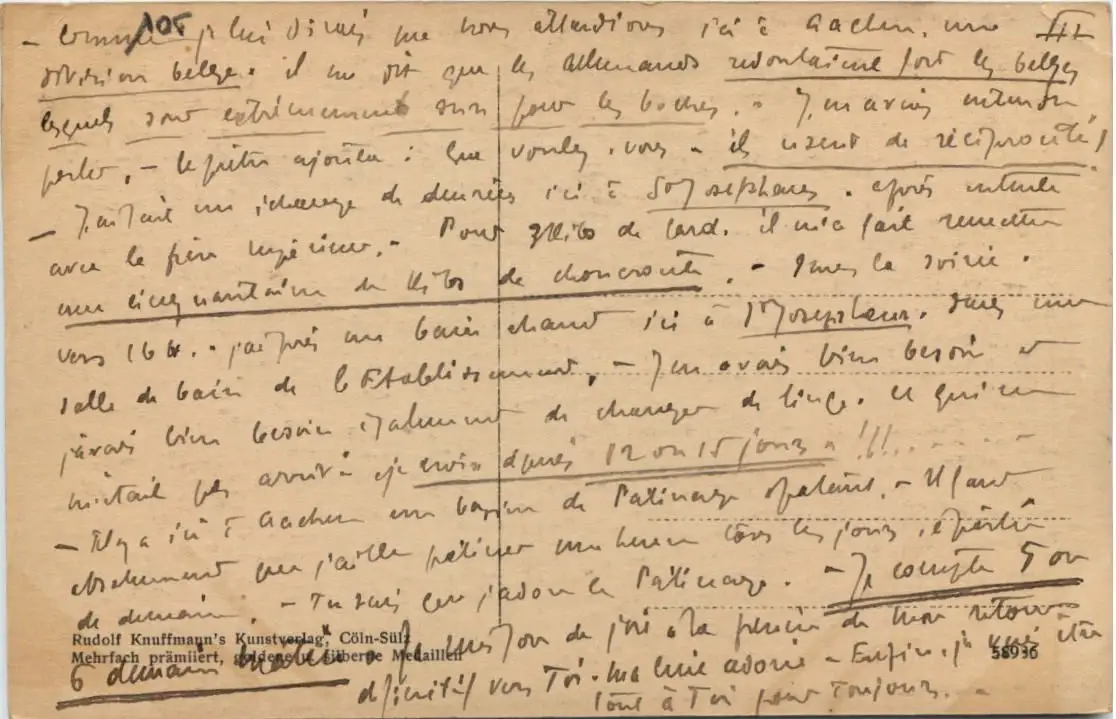 105
III
- Comme je lui disais que nous attendions ici à Aachen, une
division belge. il me dit que les Allemands redoutaient fort les belges
lesquels sont extrêmement surs pour les boches. - J'en avais entendu
parler. - le prêtre ajouta : Que voulez-vous - ils usent de réciprocité!
- J'ai fait un échange de denrées ici à St Josephhaus. après entente
avec le frère supérieur. - Pour 3 kilos de lard. il m'a fait remettre
une cinquantaine de kilos de choucroute. - Dans la soirée.
vers 16 h. - j'ai pris un bain chaud ici à St Josephhaus. dans une
salle de bain de l'Etablissement. - J'en avais bien besoin et
j'avais bien besoin également de changer de linge. ce qui ne
m'était pas arrivé je crois depuis 12 ou 15 jours !!!
- Il y a ici à Aachen un bassin de Patinage épatant. - Il faut
absolument que j'aille patiner une heure tous les jours, à partir
de demain. - Tu sais que j'adore le Patinage. - Je compte 5 ou
6 demain
de joie à la pensée de mon retour
définitif vers Toi. ma chérie adorée - Enfin, je vais être
tout à Toi pour Toujours. -
Rudolf Knuffmann's Kunstverlag, Cöln-Sülz
Mehrfach prämiiert, goldene u. silberne Medaillen
58996